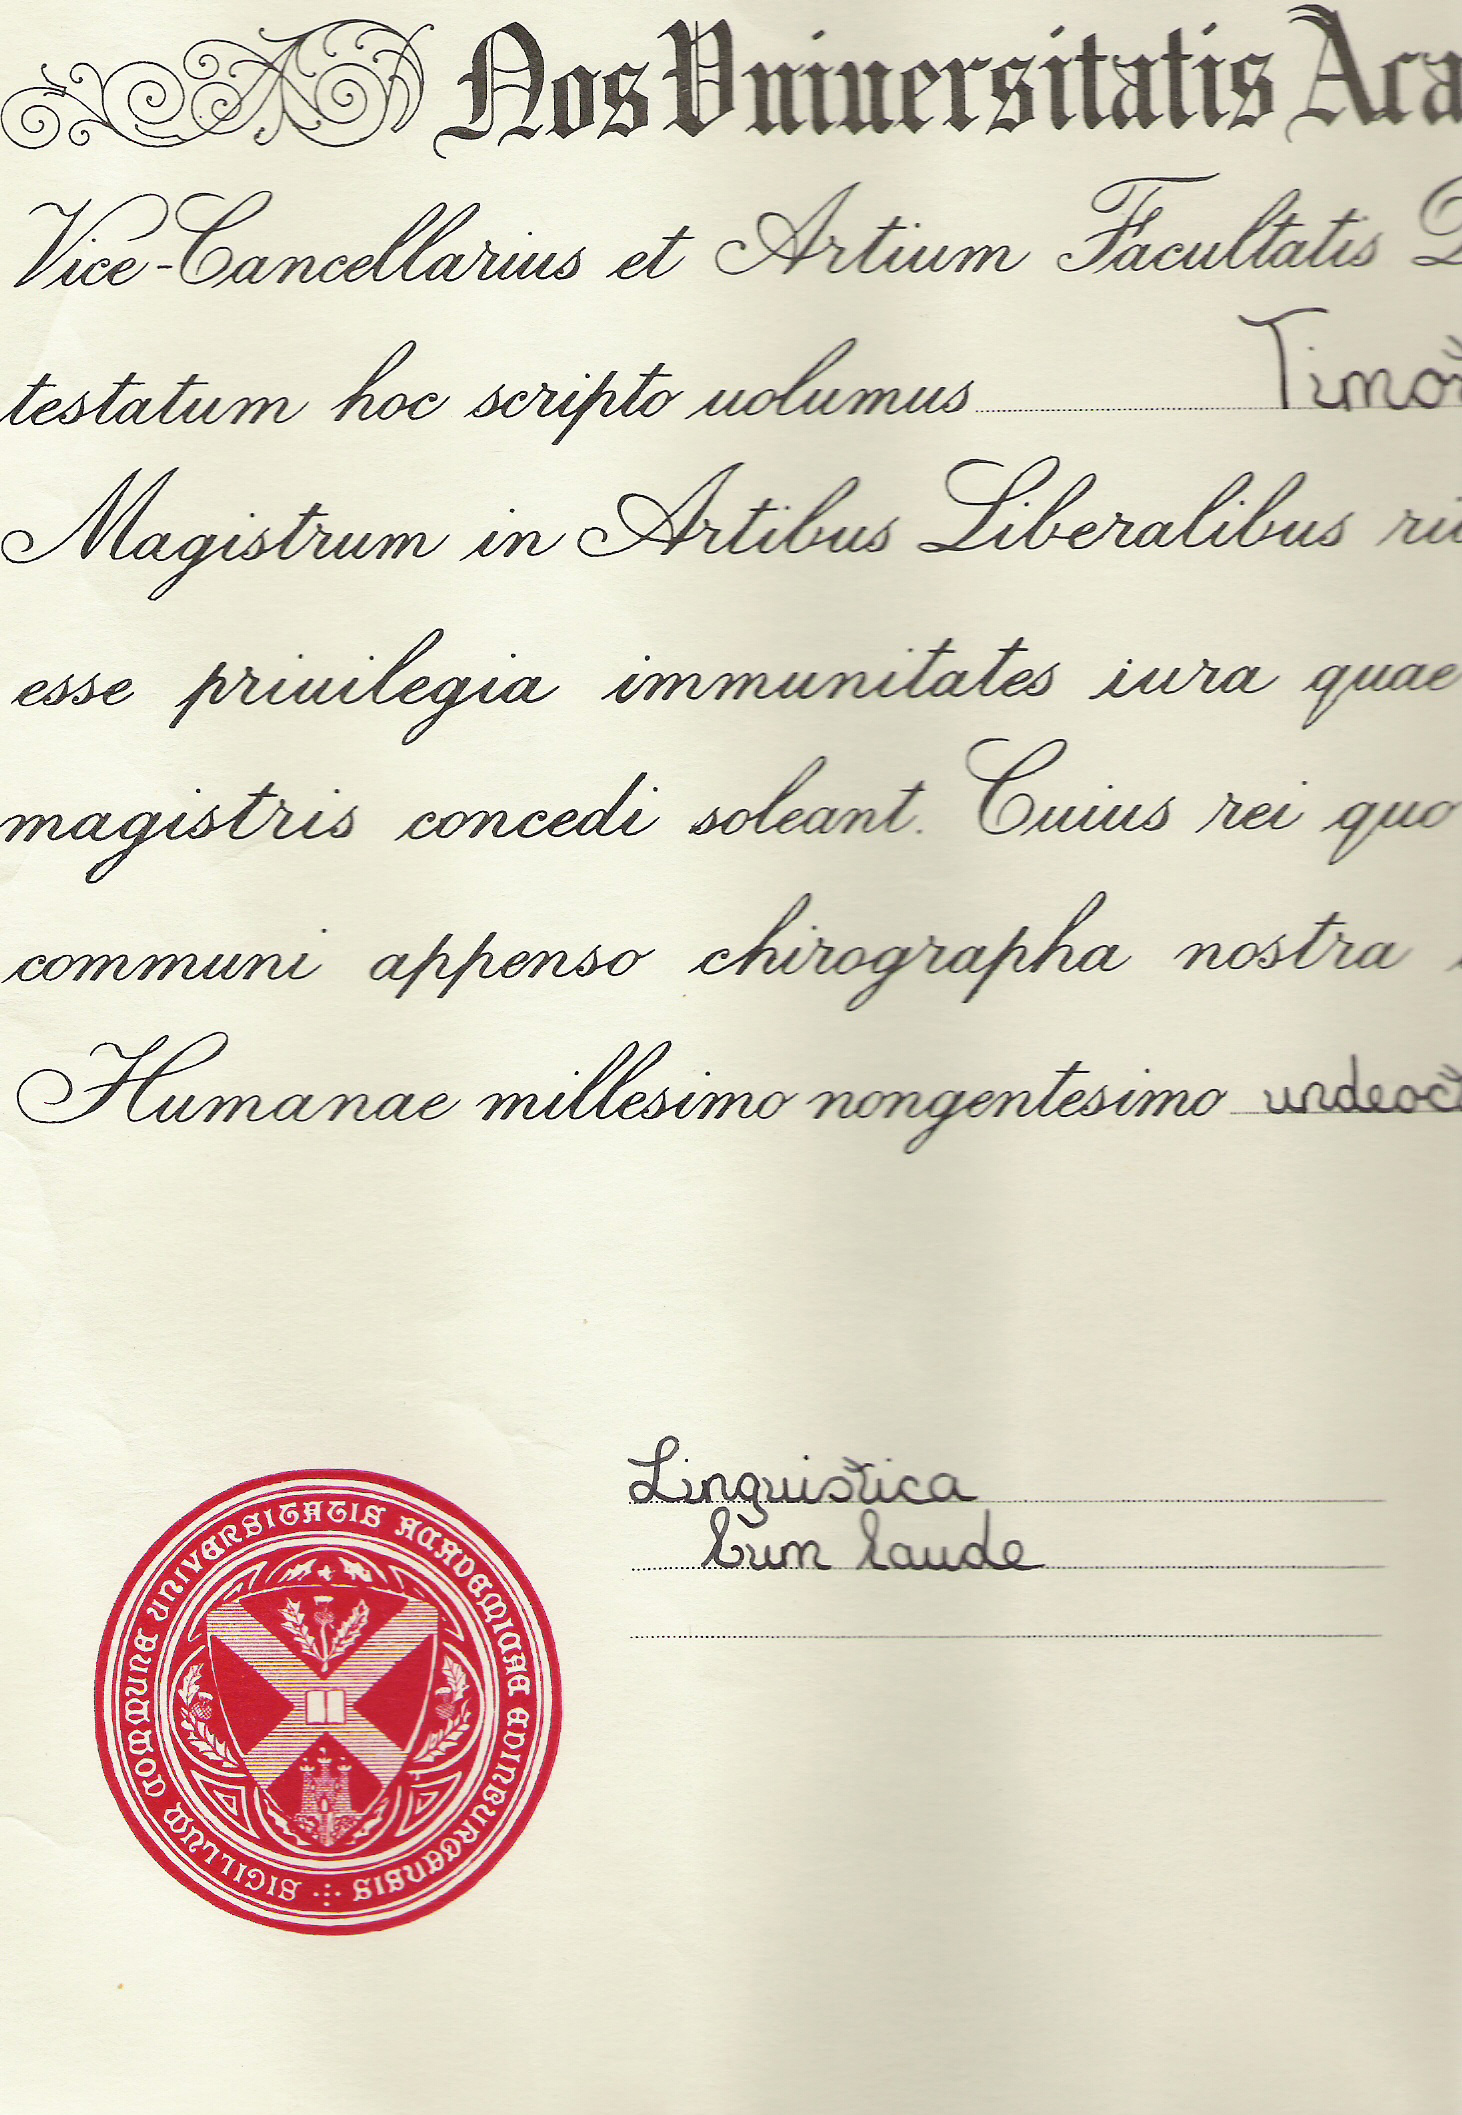 Nos Vniuersitatis Aca
Vice-Cancellarius et Artium Facultatis D
testatum hoc scripto uolumus Timo
Magistrum in Artibus Liberalibus ri
esse priuilegia immunitates iura quae
magistris concedi soleant. Cuius rei quo
communi appenso chirographa nostra
Humanae millesimo nongentesimo undeoct
Linguistica
Cum laude
SIGILLUM COMMUNE UNIVERSITATIS ACADEMICAE EDINBURGENSIS